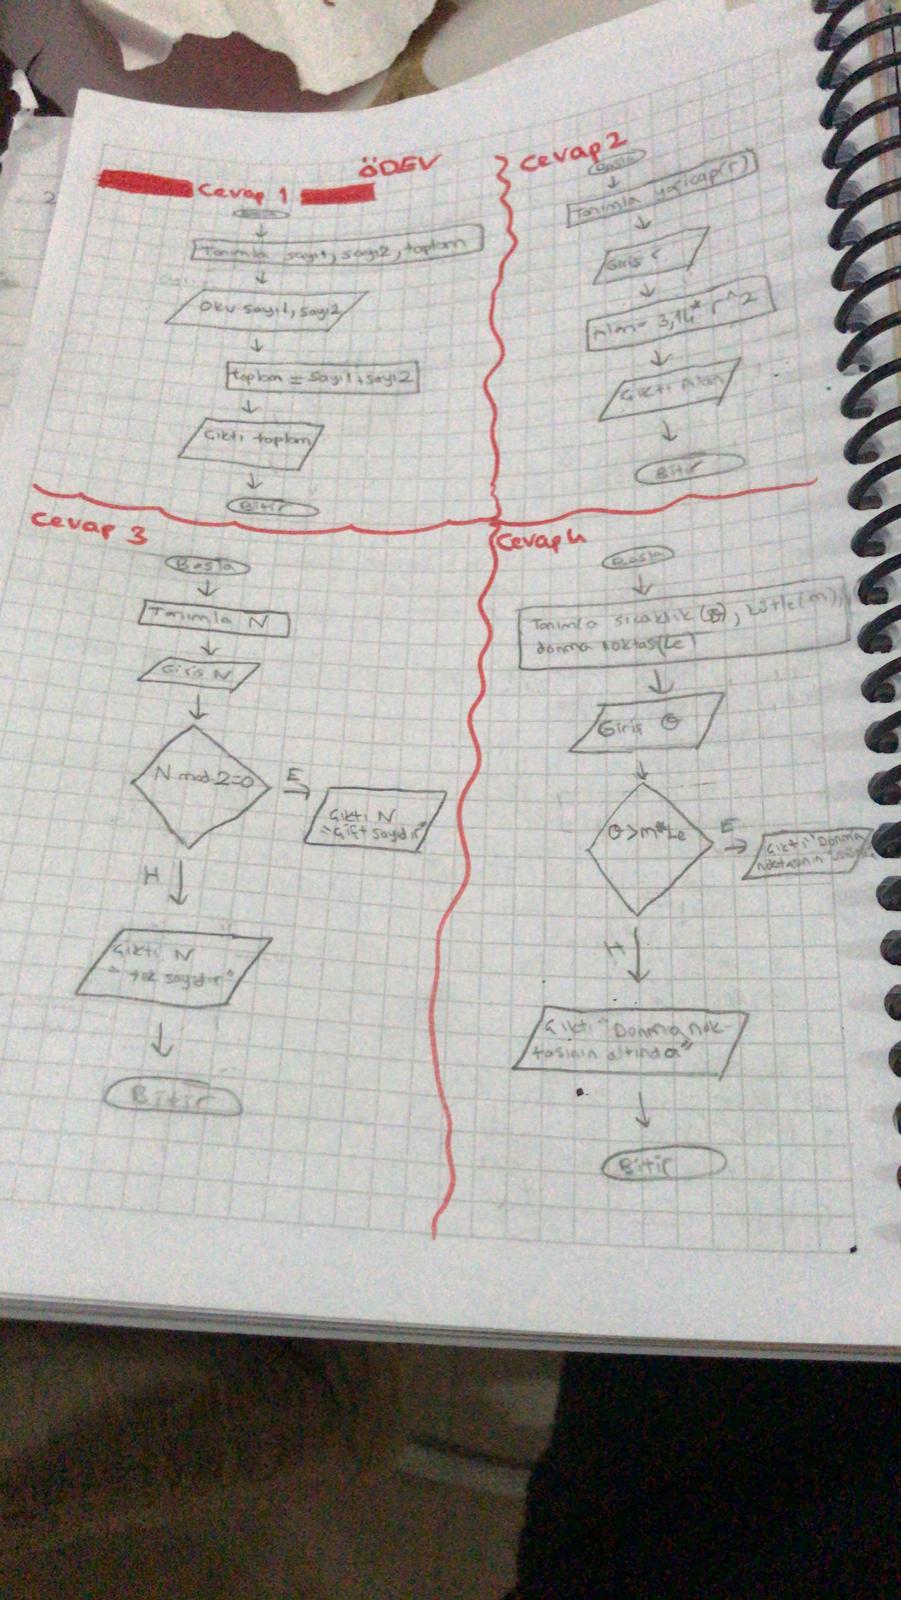 ÖDEV
Cevap 1
Tanımla sayı1, sayı2, toplam
Oku sayı1, sayı2
toplam = sayı1+sayı2
Çıktı toplam
Bitir
Cevap 2
Başla
Tanımla yarıçap(r)
Giriş r
Alan= 3,14* r^2
Çıktı Alan
Bitir
Cevap 3
Başla
Tanımla N
Giriş N
N mod 2=0
E
Çıktı N
"çift sayıdır"
H
Çıktı N
"tek sayıdır"
Bitir
Cevap 4
Başla
Tanımla sıcaklık (θ), kütle(m),
donma noktası(Le)
Giriş θ
θ>m*Le
E
Çıktı "Donma
noktasının
H
Çıktı "Donma nok-
tasının altında"
Bitir